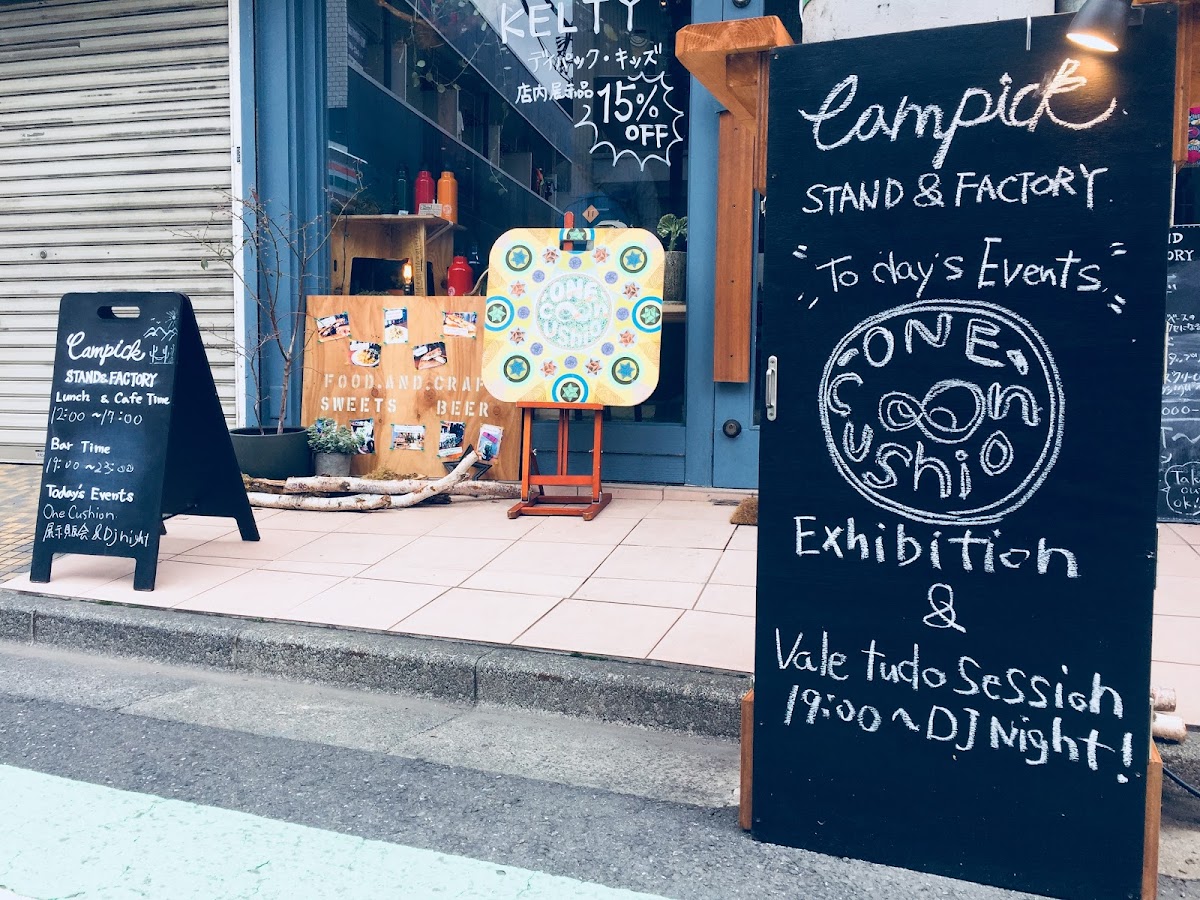 KELTY
デイパック・キッズ
店内展示品
15%
OFF
Campick
STAND & FACTORY
Lunch & Cafe Time
12:00~17:00
Bar Time
19:00~23:00
Today's Events
One Cushion
展示販会 & Dj night
FOOD.AND.CRAF
SWEETS BEER
ONE
CUSHION
Campick
STAND & FACTORY.
"Today's Events"
ONE
Cushion
Exhibition
&
Vale tudo Session
19:00~DJ Night!